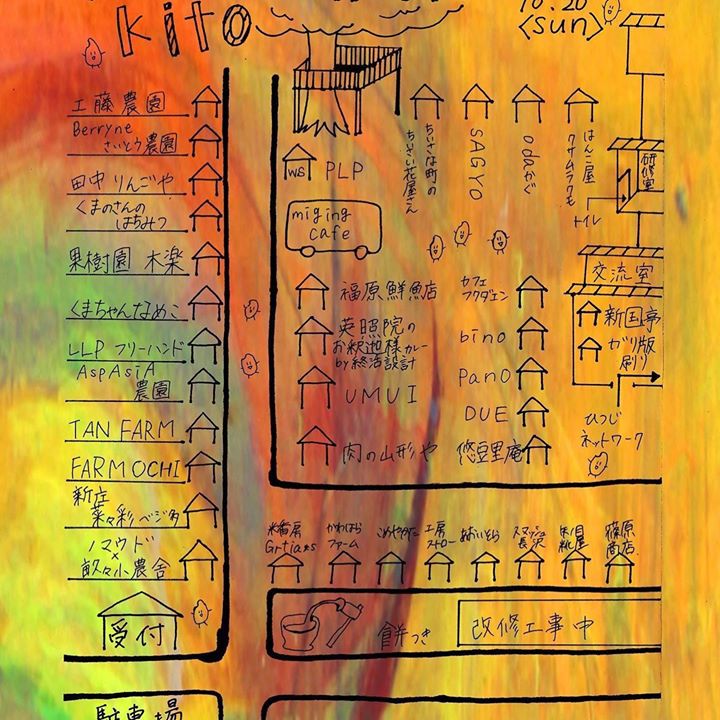 kito
10.20
<sun>
工藤農園
Berryne
さいとう農園
田中りんごや
くまのさんの
はちみつ
果樹園 木楽
くまちゃんなめこ
LLP フリーハンド
AspAsiA
農園
TAN FARM
FARM OCHI
新庄
菜々彩ベジ多
ノマウド
×
畝々小農舎
受付
駐車場
ws PLP
miging
cafe
ちいさな町の
ちいさい花屋さん
SAGYO
odaかぐ
はんこ屋
クサムラクモ
トイレ
研修室
交流室
新国亭
ガリ版
刷り
ひつじ
ネットワーク
福原鮮魚店
英照院の
お釈迦様カレー
by終活設計
UMUI
肉の山形や
カフェ
フクダエン
bino
pano
DUE
悠豆里庵
かわはら
ファーム
工房
ストロー
あおいとら
スマッシュ
長沢
篠原
商店
餅つき
改修工事中